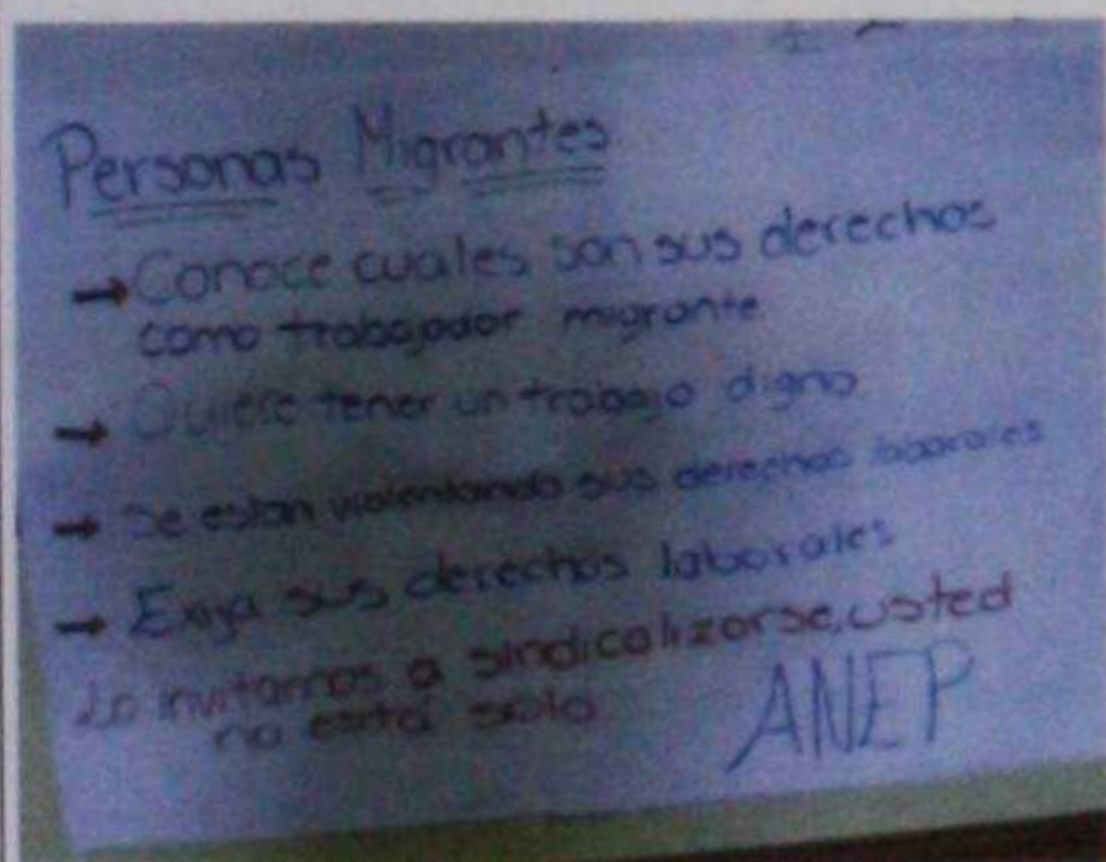 Personas Migrantes
→ Conoce cuales son sus derechos
como trabajador migrante
→ Quiese tener un trabajo digno
→ Se estan violentando sus derechos laborales
→ Exija sus derechos laborales
Lo invitamos a sindicalizarse, usted
no está solo
ANEP